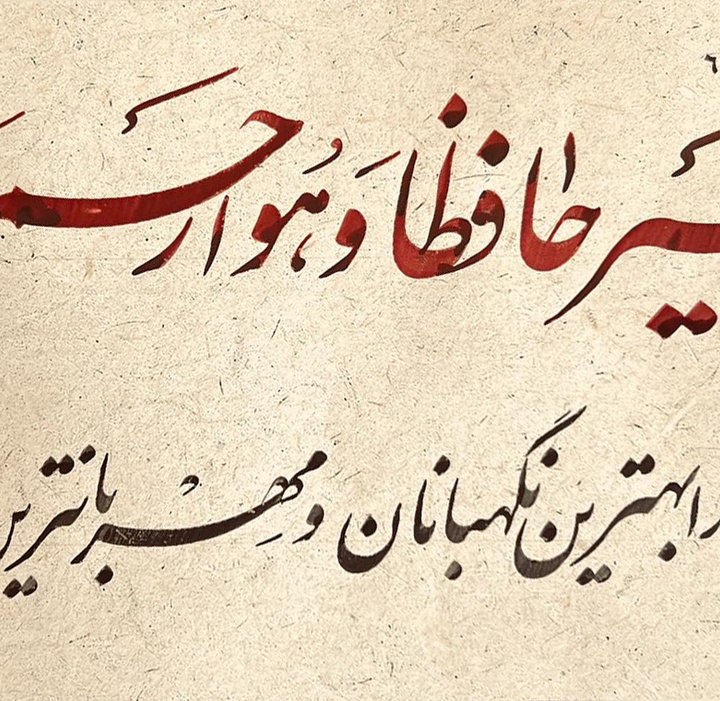 یر حافظا وَهُوَ ارحَم
ا بهترین نگهبانان و مهربانترین